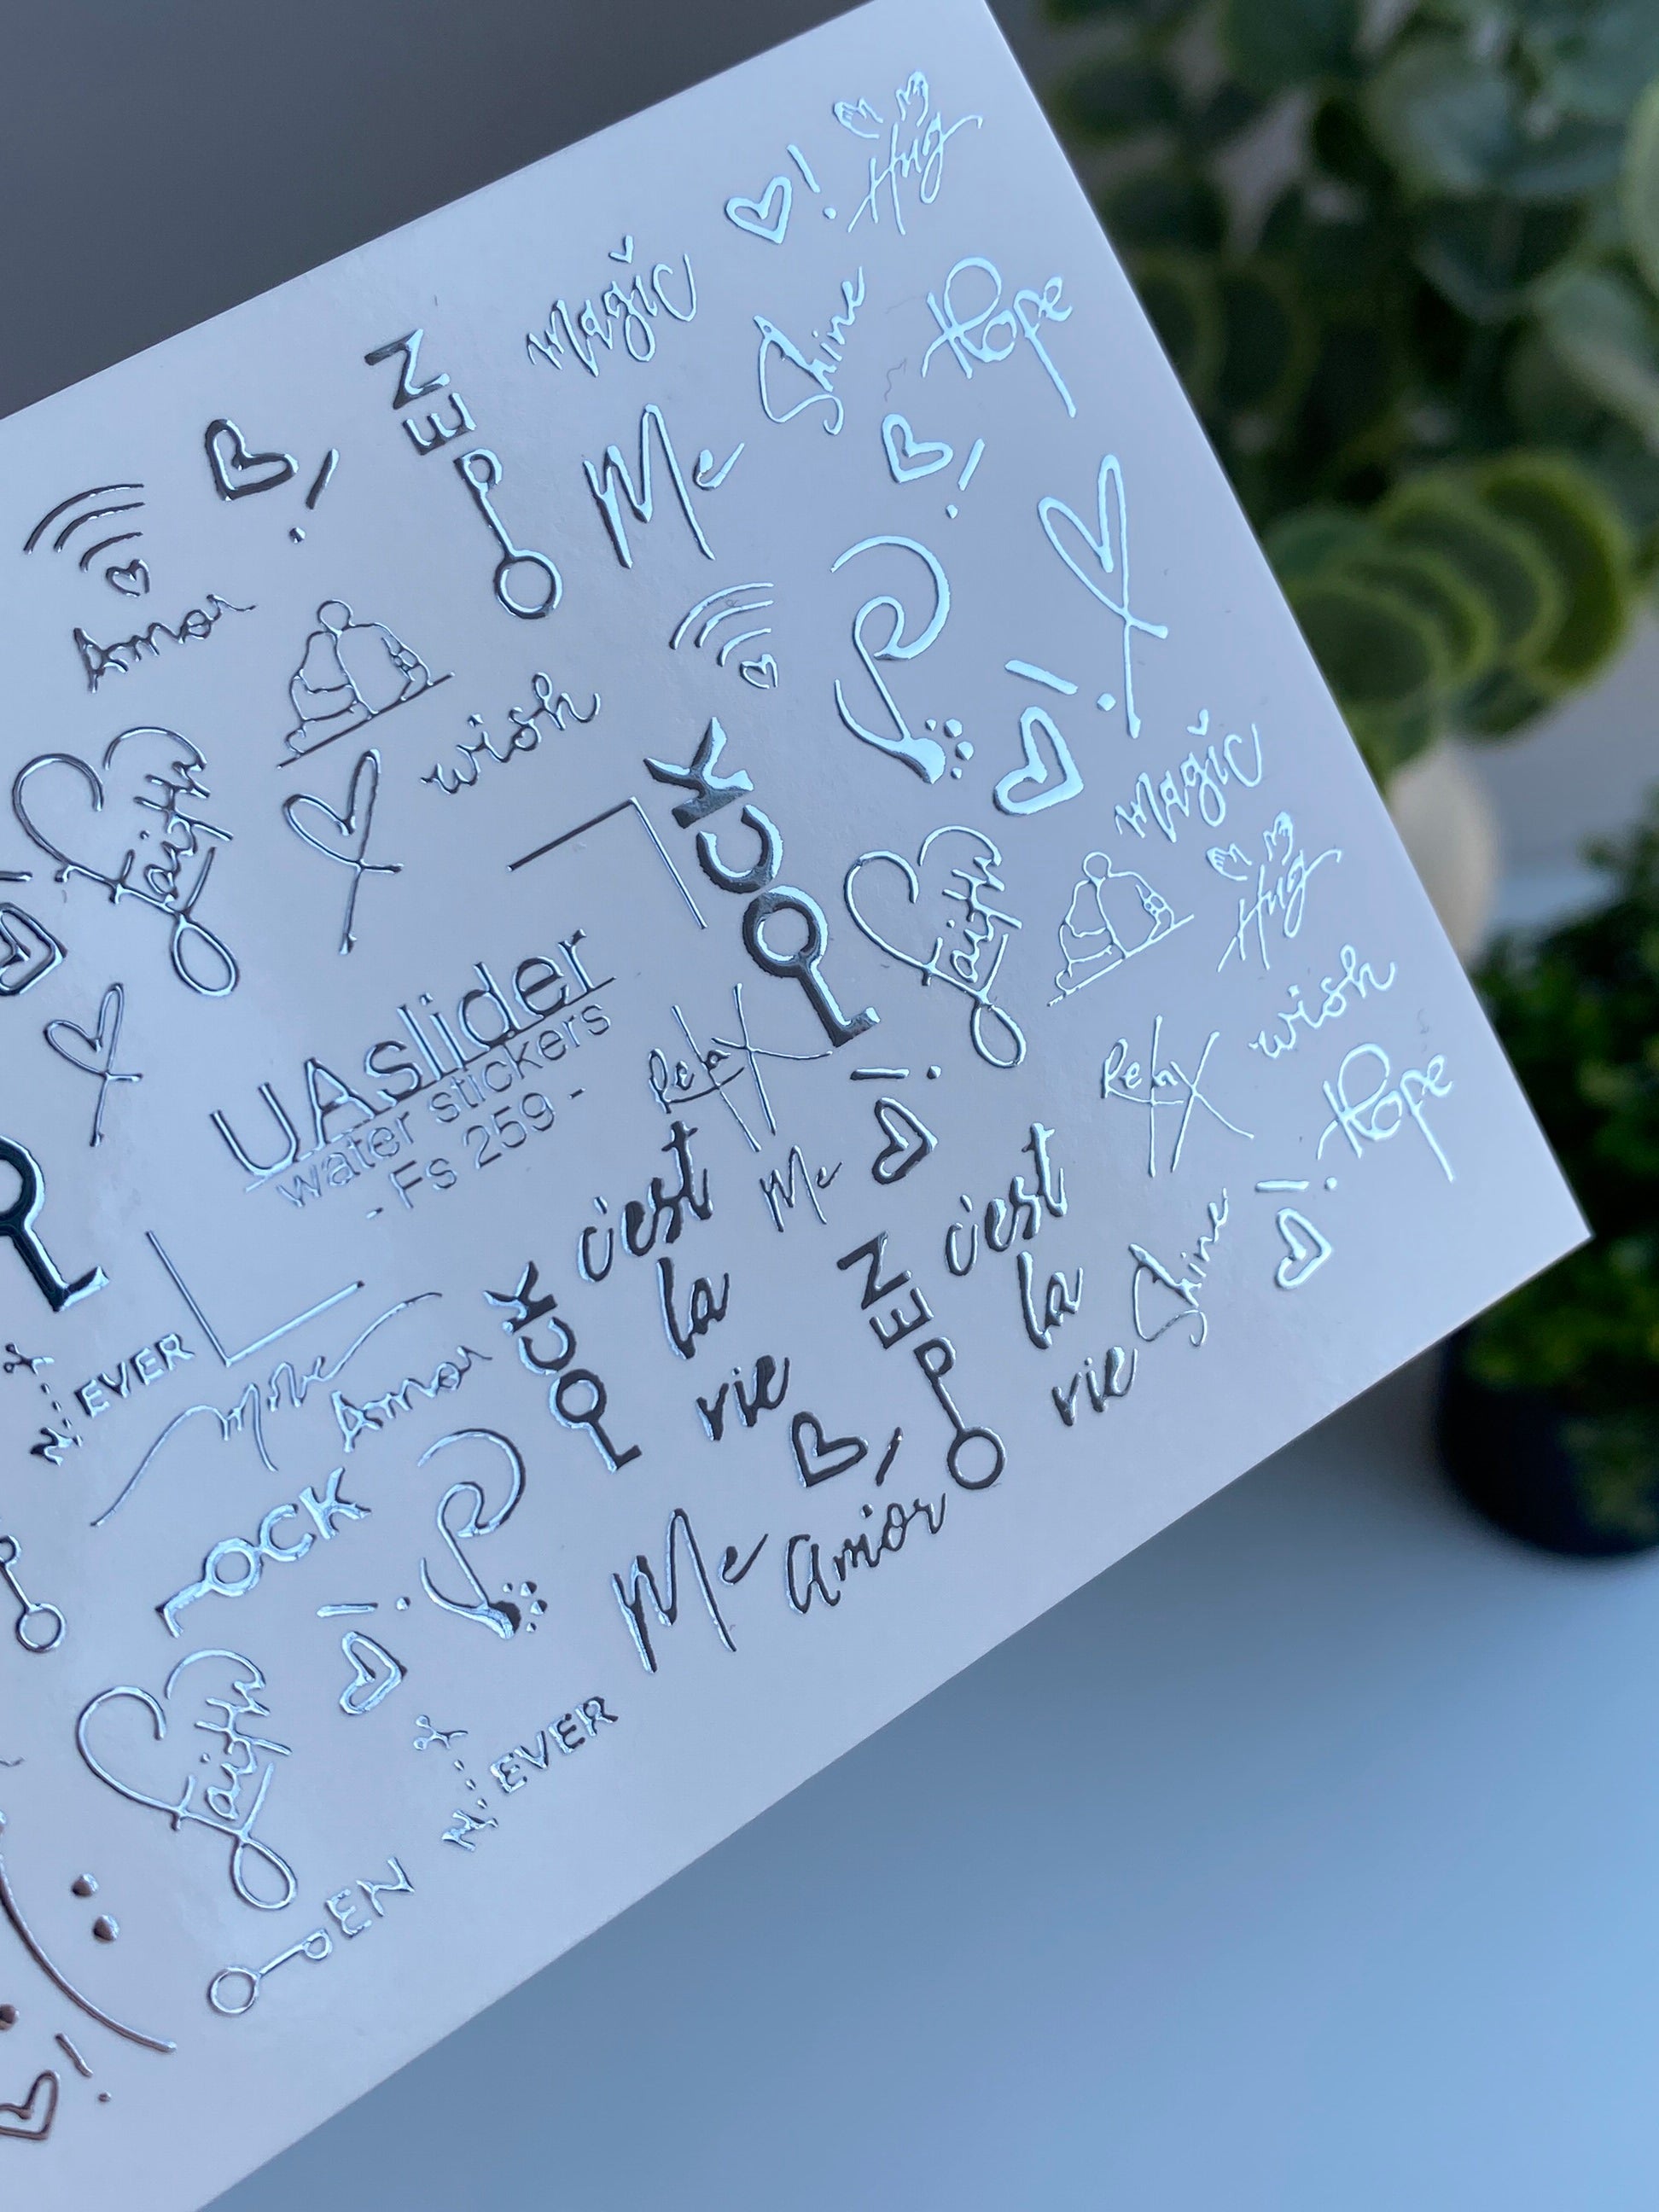 Hug
!
magic
Shine
Hope
OPEN
Me
!
!
Amor
wish
!
faith
LOCK
magic
faith
Hug
wish
UAslider
water stickers
- Fs 259 -
Relax
Relax
Hope
!
Me
c'est
la
vie
c'est
la
vie
Shine
!
OPEN
N:EVER
Amor
LOCK
LOCK
Me
Amor
!
faith
N:EVER
OPEN
!